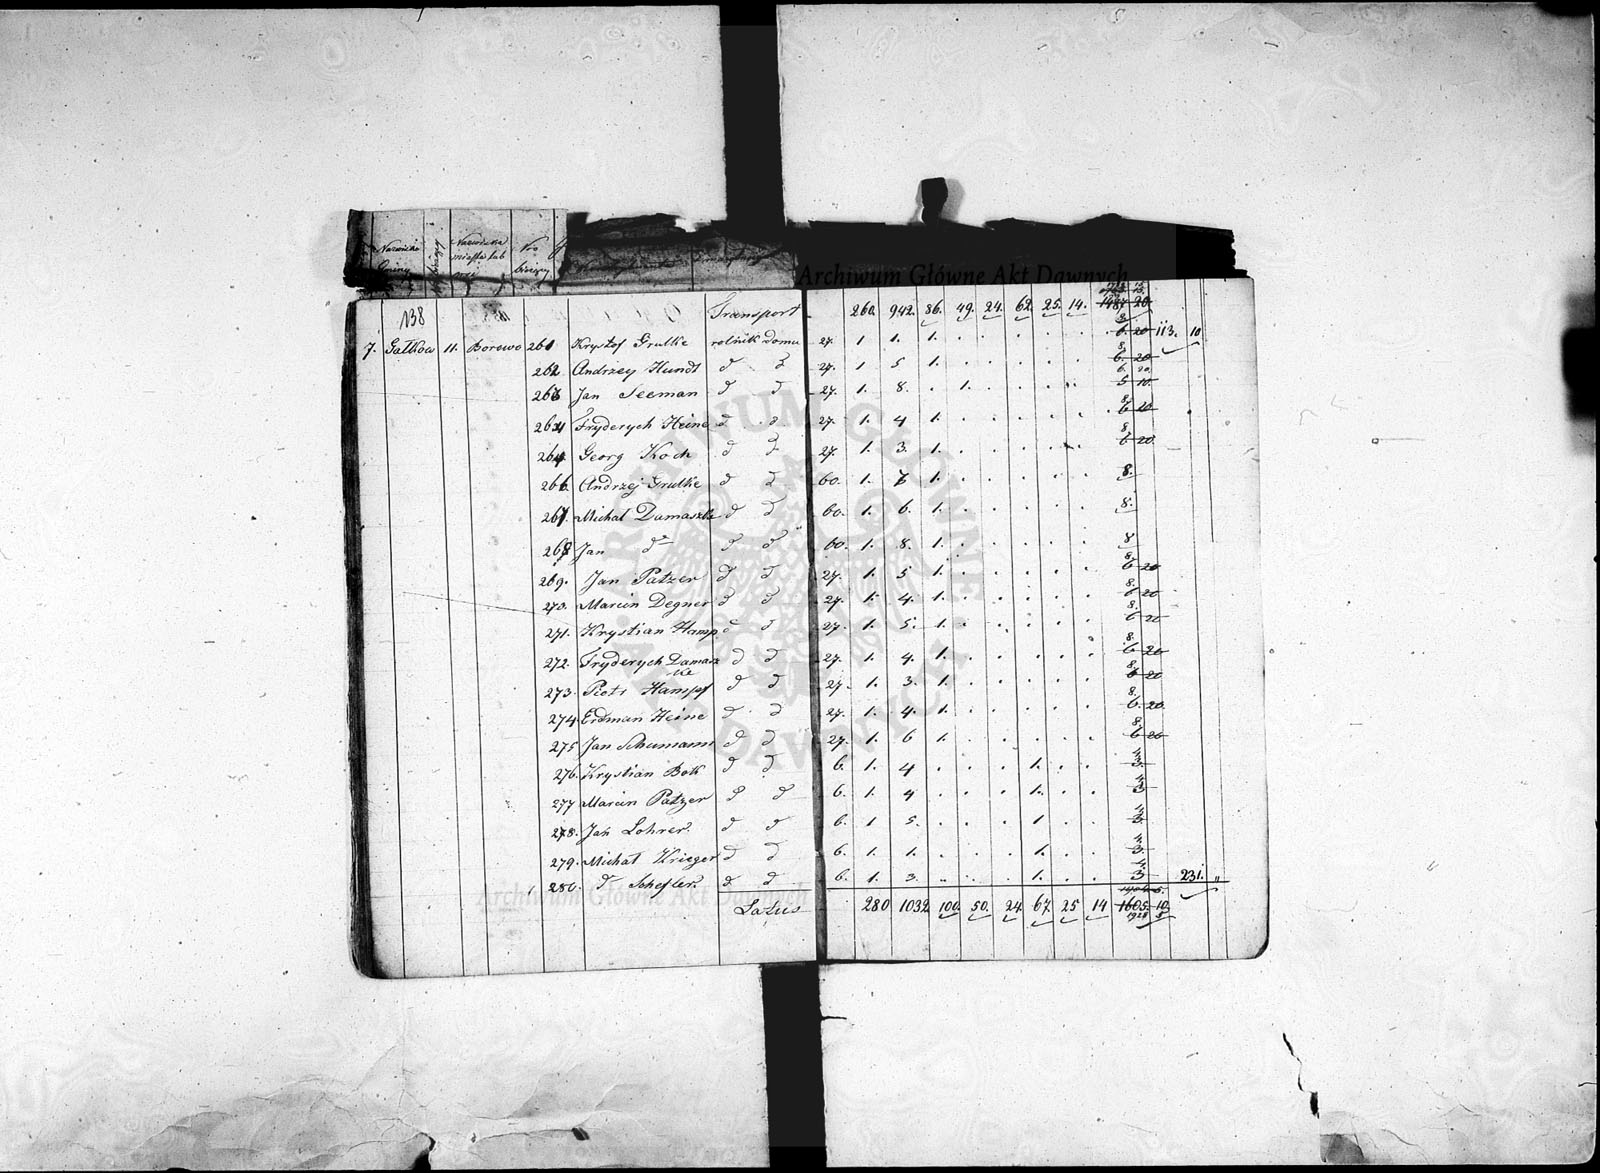 Nazwisko Gminy
Nazwiska miasta lub wsi
Nro bieżący
Archiwum Główne Akt Dawnych
138 Transport 260. 942. 86. 49. 24. 62. 25. 14. 1487 20
7. Gałkow 11. Borowo 261 Krysztof Grulke rolnik domu 27. 1 1. 1. 8. 6. 20 113. 10
262 Andrzey Hundt d d 27. 1 5 1. 8. 6. 20
263 Jan Seeman d d 27. 1. 8. 1. 6. 20. 5 10.
264 Fryderych Heine d d. 27. 1. 4 1. 8. 6 20
264 Georg Koch d d 27. 1. 3. 1. 8. 6 20
266 Andrzej Grulke d d 60. 1. 7 1. 8.
267. Michał Damaszke d d 60. 1. 6. 1. 8.
268 Jan d d d 60. 1. 8. 1. 8
269. Jan Patzer d d 27. 1. 5 1. 8. 6 20
270. Marcin Degner d d 27. 1. 4. 1. 8. 6 20
271. Krystian Hamp d d 27. 1. 5. 1. 8. 6 20
272. Fryderych Damaszke d d 27. 1. 4. 1. 8. 6 20
273. Piotr Hampf d d 27. 1. 3. 1. 8. 6 20
274. Erdman Heine d d 27. 1. 4. 1. 8. 6. 20.
275 Jan Schumann d d 27. 1. 6 1. 8. 6 20
276. Krystian Bok d d 6. 1. 4 1. 4. 3.
277 Marcin Patzer d d 6. 1. 4 1. 4. 3
278. Jan Lohrer. d d 6. 1 5. 1 4. 3.
279. Michał Krieger d d 6. 1. 1. 1. 4. 3.
280. d Schefler. d. d 6. 1. 3. 1. 4. 3 231. "
Latus 280 1032 100. 50. 24 67. 25 14 1605. 10.
1928 5
Archiwum Główne Akt Dawnych
ARCHIWUM GŁÓWNE AKT DAWNYCH